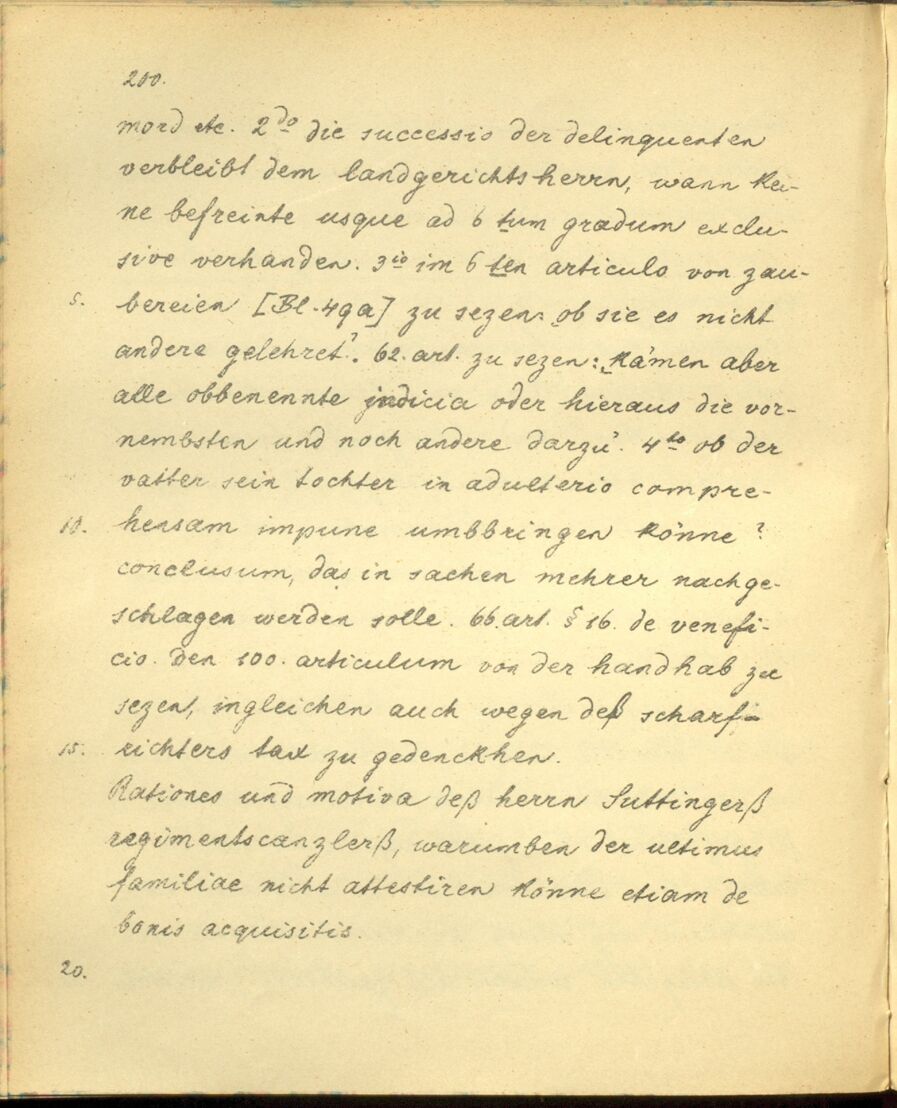 200.
mord etc. 2do die successio der delinquenten
verbleibt dem landgerichtsherrn, wann kei-
ne befreinte usque ad 6 tum gradum exclu-
sive verhanden. 3io im 6 ten articulo von zau-
5. bereien [Bl. 49a] zu sezen: „ob sie es nicht
andere gelehret“. 62. art. zu sezen: „kämen aber
alle obbenennte indicia oder hieraus die vor-
nembsten und noch andere darzu“. 4to ob der
vatter sein tochter in adulterio compre-
10. hensam impune umbbringen könne?
conclusum, das in sachen mehrer nachge-
schlagen werden solle. 66. art. § 16. de venefi-
cio. den 100. articulum von der handhab zu
sezen, ingleichen auch wegen deß scharf-
15. richters tax zu gedenckhen.
Rationes und motiva deß herrn Suttingerß
regimentscanzlerß, warumben der ultimus
familiae nicht attestiren könne etiam de
bonis acquisitis.
20.